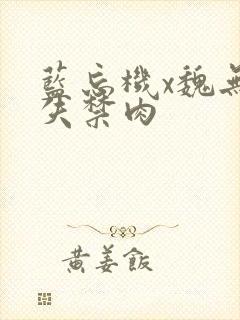 藍忘機x魏無
失禁肉
黄姜飯